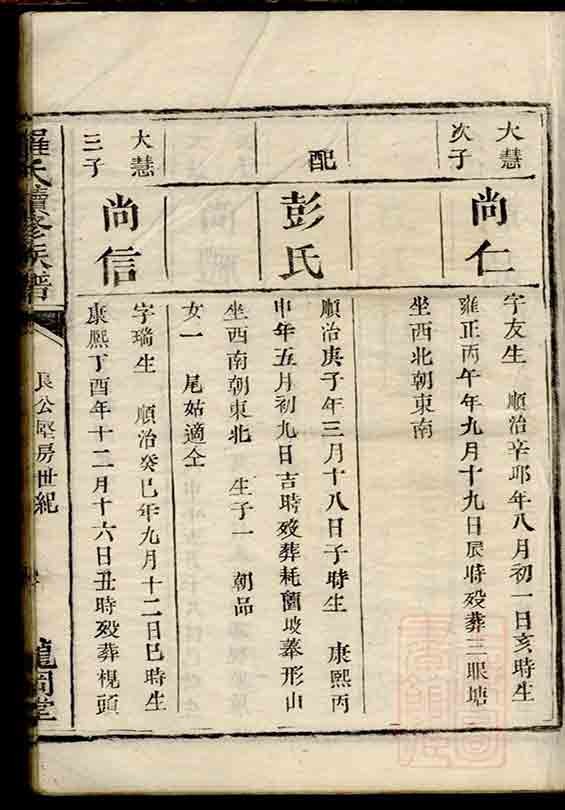 大慧
次子
尚仁
字友生 順治辛卯年八月初一日亥時生
雍正丙午年九月十九日辰時殁葬三眼塘
坐西北朝東南
配
彭氏
順治庚子年三月十八日子時生 康熙丙
申年五月初九日吉時殁葬耗蘭坡墓形山
坐西南朝東北 生子一 朝品
女一 尾姑適仝
大慧
三子
尚信
字瑞生 順治癸巳年九月十二日巳時生
康熙丁酉年十二月十六日丑時殁葬梘頭
羅氏續修族譜
良公堅房世紀
龍岡堂